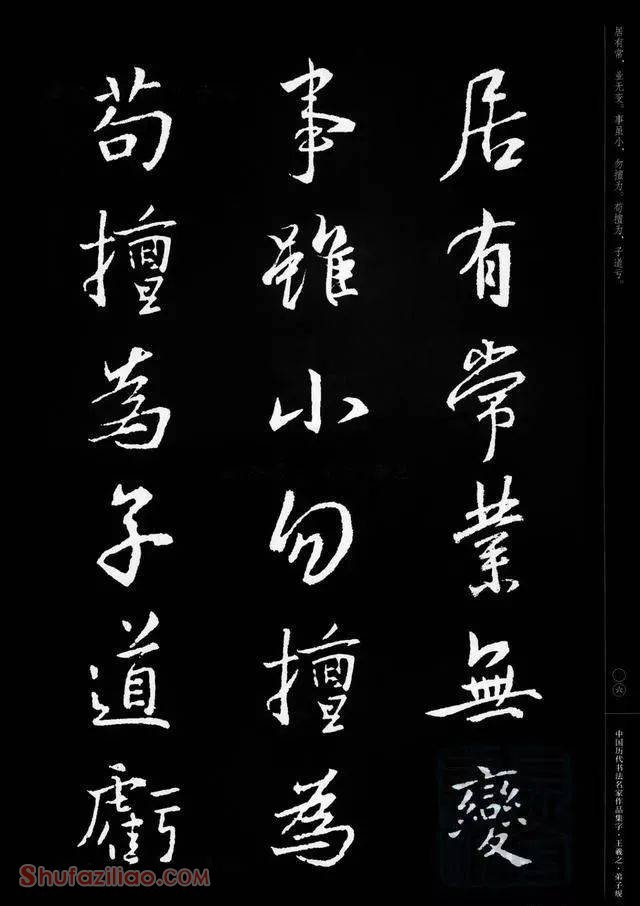 居有常業無變
事雖小勿擅為
苟擅為子道虧
居有常，业无变。事虽小，勿擅为。苟擅为，子道亏。
〇六
中国历代书法名家作品集字·王羲之·弟子规
Shufaziliao.com